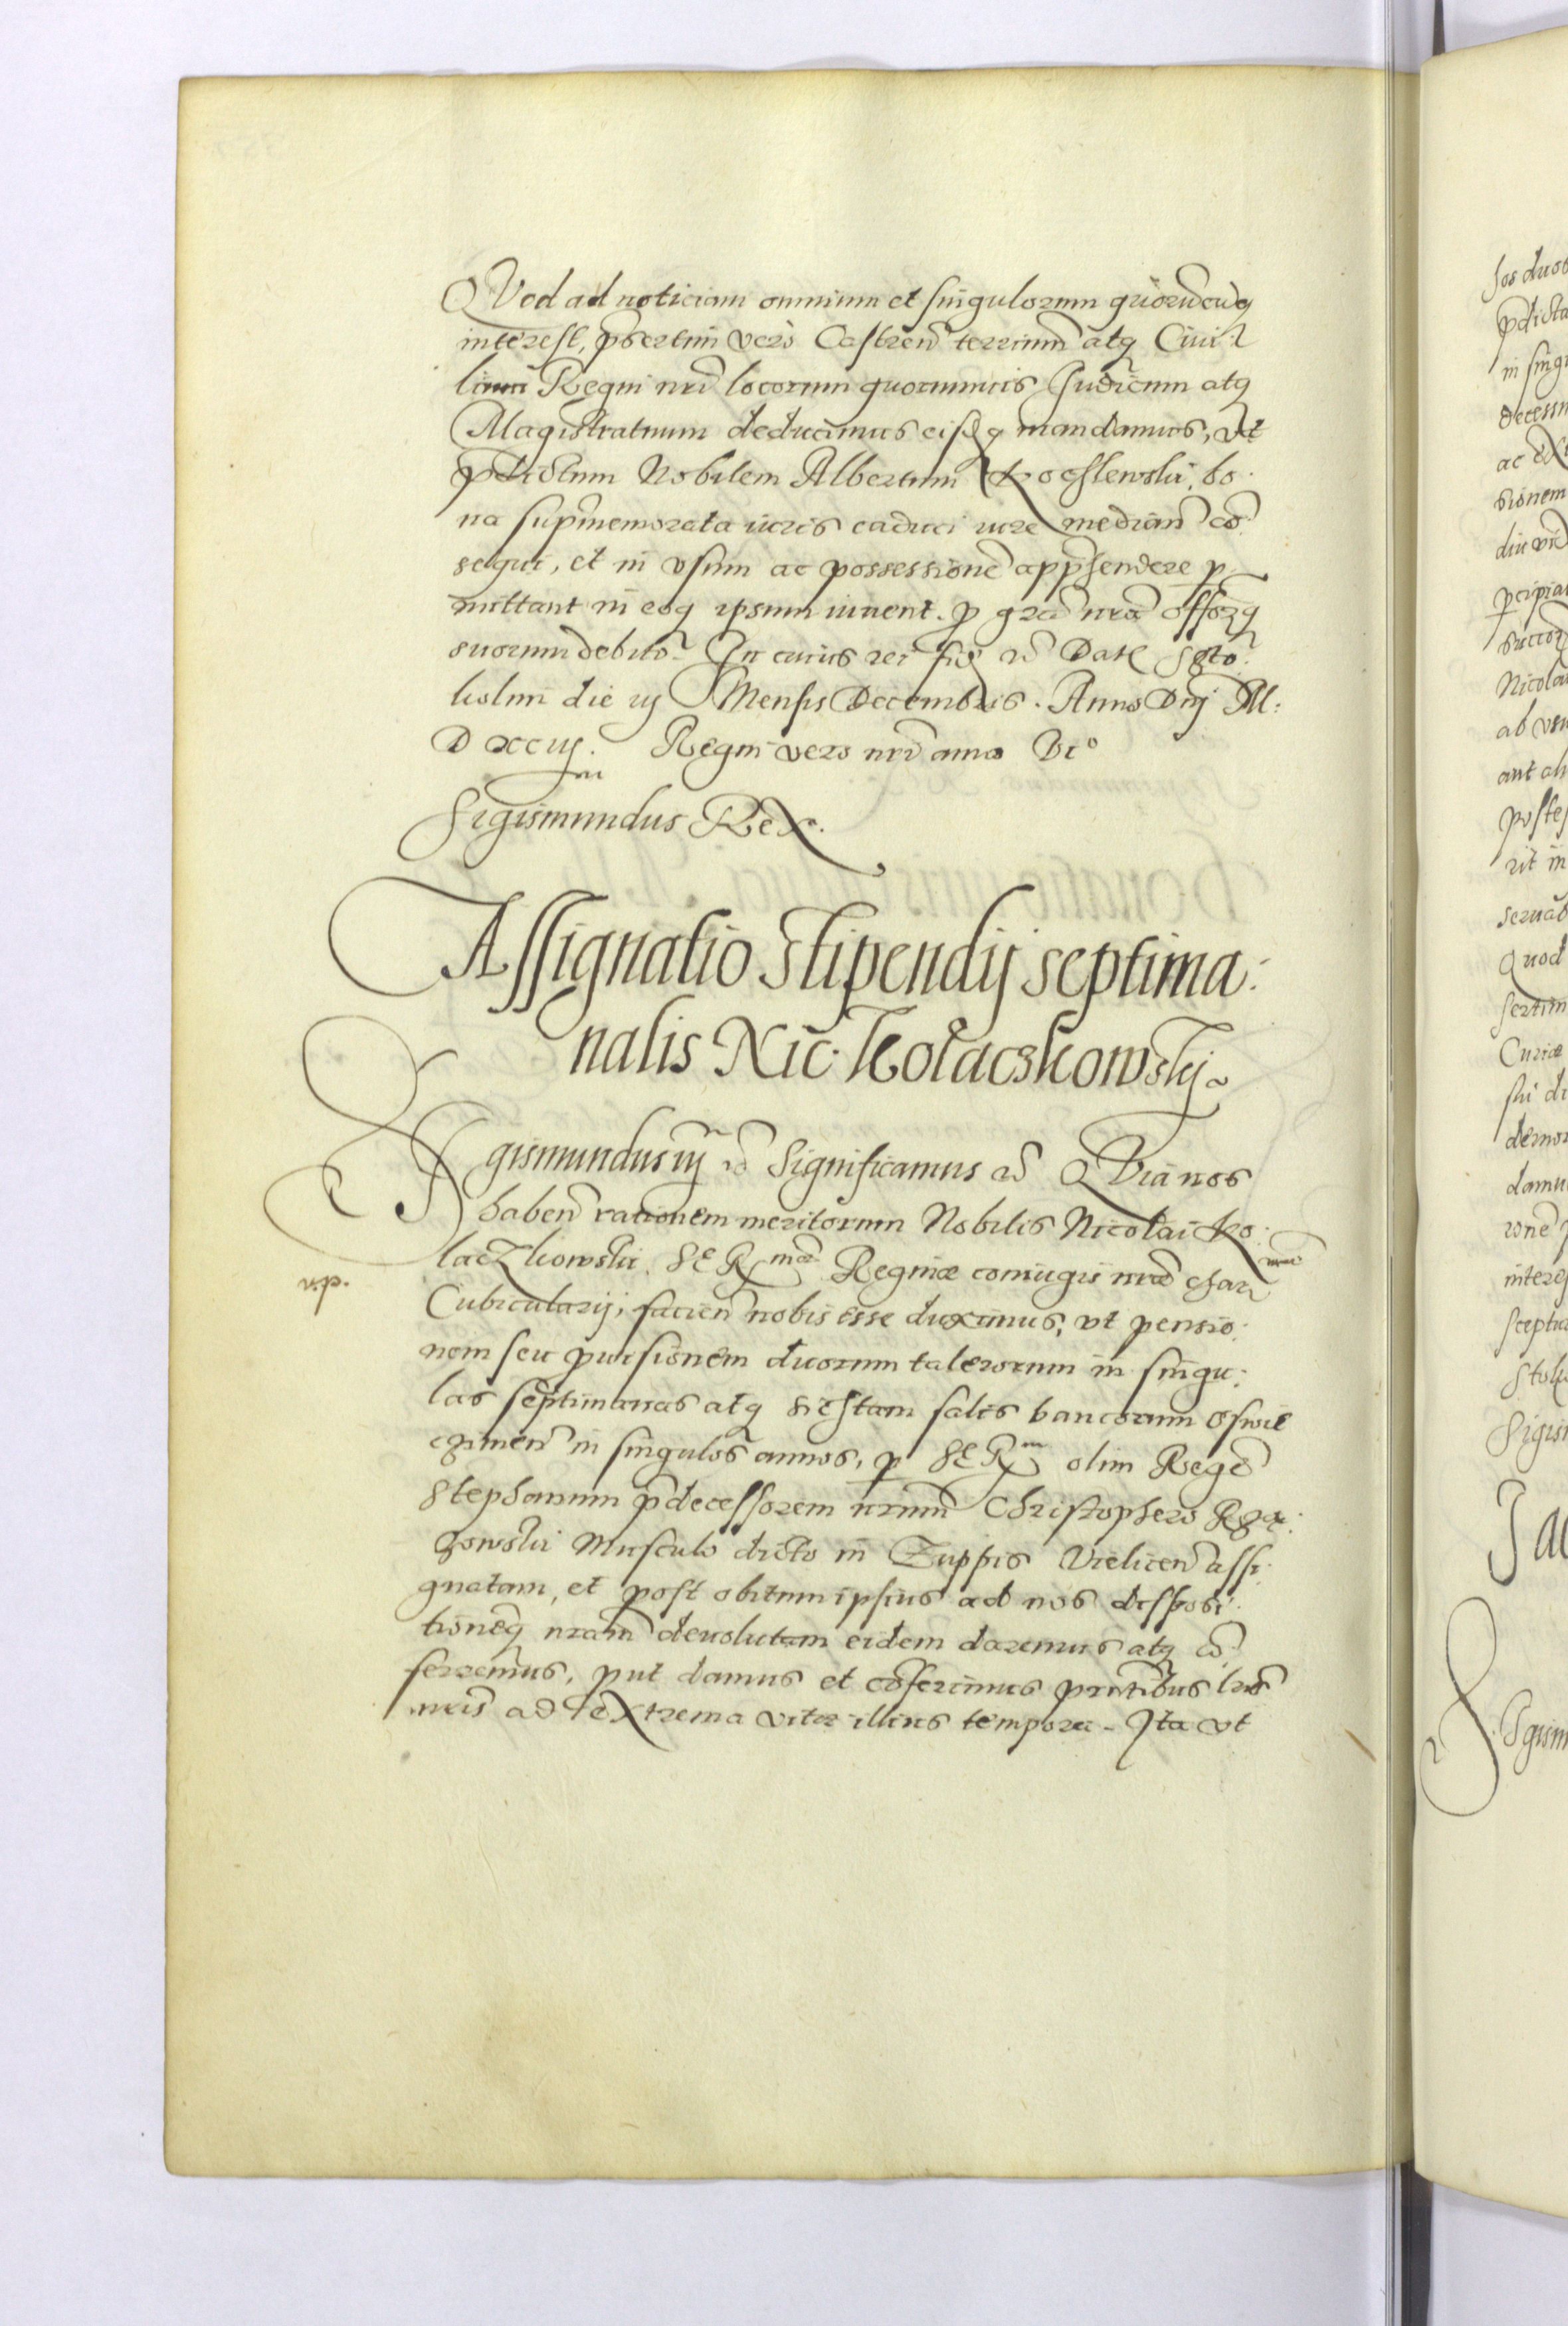 QVod ad noticiam omnium et singulorum quorũcũq
interest, p̃sertim vero Castreñ terrium̃ atq Ciui
lium Regni nr̃i locorum quorumuis Iudicum atq
Magistratuum deducimus eisdq mandamus, vt
p̃dictum Nobilem Albertum Kochlewski, bo
na sup̃memorata iuris caduci iure mediañ cõ
sequi, et in vsum ac possessionẽ app̃hendere p
mittant in eoq ipsum iuuent. p gr̃a nr̃a offorq
suorum debito. In cuius rei fid̃ rc̃ Dat Szto
kolm die iij Mensis Decembris. Anno Dnj M.
D xcij. Regni vero nr̃i anno Vto
Sigismundus Rex.
Assignatio Stipendij septima:
nalis Nic: Kołaczkowskij
Sigismundus iij rc̃ Significamus rc̃ QVia nos
habeñ rationem meritorum Nobilis Nicolai Ko:
laczkowski, SE Rmæ Reginæ coniugis nr̃æ char
mæ
n.p.
Cubicularij, facieñ nobis esse duximus, vt pensio:
nem seu prouisionem duorum talerorum in singu:
las septimanas atq sestam salis bancorum Oswie
czimeñ in singulos annos, p SE Rm olim Regẽ
Stephanum p̃decessorem nr̃um Christophero Rga:
zowski Musculo dicto in Zuppis Vieliceñ assi:
gnatam, et post obitum ipsius ad nos disposi:
tionẽq nr̃am deuolutam eidem daremus atq cõ
ferremus, put damus et cõferimus pr̃ntibus lr̃is
nr̃is ad extrema vitæ illius tempora. Ita vt